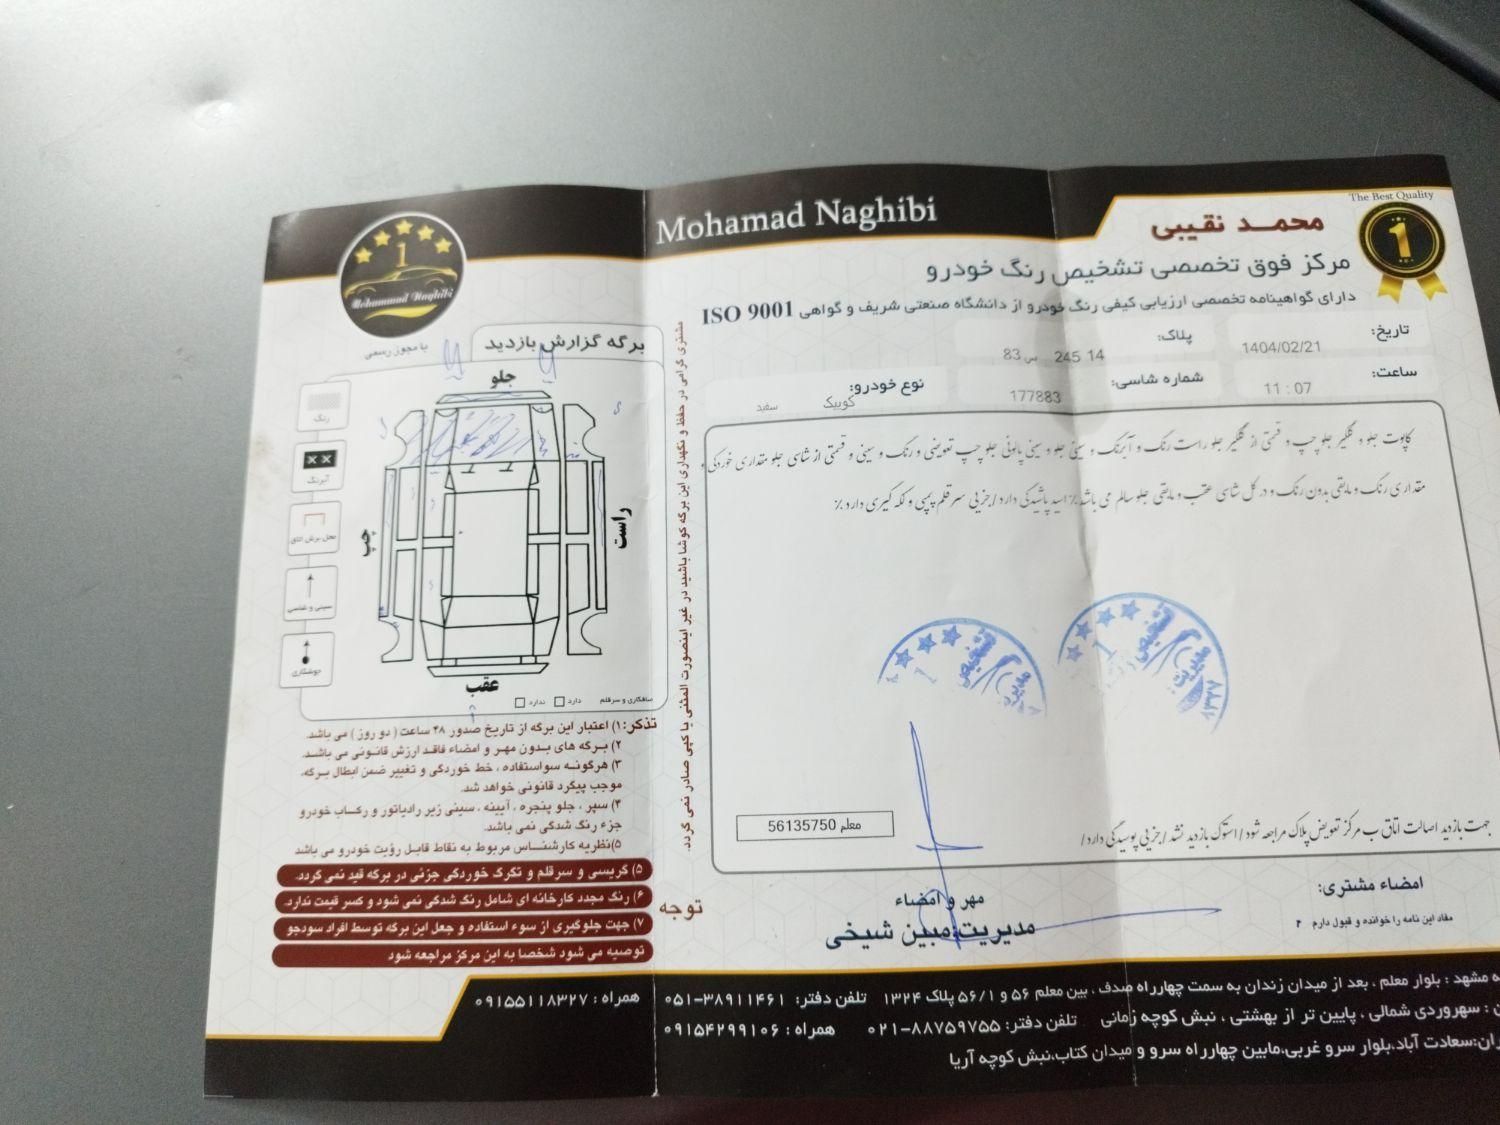 The Best Quality
1
Mohamad Naghibi
محمد نقیبی
مرکز فوق تخصصی تشخیص رنگ خودرو
دارای گواهینامه تخصصی ارزیابی کیفی رنگ خودرو از دانشگاه صنعتی شریف و گواهی ISO 9001
تاریخ: 1404/02/21
پلاک: 14 245 س 83
ساعت: 11 : 07
شماره شاسی: 177883
نوع خودرو: کوییک سفید
کاپوت جلو و گلگیر جلو چپ و قسمتی از گلگیر جلو راست رنگ و آبرنگ و سینی جلو و سینی پالونی جلو چپ تعویضی و رنگ و سینی و قسمتی از شاسی جلو مقداری خوردگی و
مقداری رنگ و مابقی بدون رنگ و در کل شاسی عقب و مابقی جلو سالم می باشد٪ اسید پاشیدگی دارد/جزیی سرقلم پمپی و لکه گیری دارد٪
جهت بازدید اصالت اتاق ب مرکز تعویض پلاک مراجعه شود/استوک بازدید نشد/جزیی پوسیدگی دارد/
معلم 56135750
امضاء مشتری:
مفاد این نامه را خوانده و قبول دارم
مهر و امضاء
مدیریت مبین شیخی
Mohammad Naghibi
1
با مجوز رسمی
برگه گزارش بازدید
جلو
راست
چپ
عقب
رنگ
آبرنگ
محل برش اتاق
سینی و شاسی
جوشکاری
صافکاری و سرقلم دارد ندارد
مشتری گرامی در حفظ و نگهداری این برگه کوشا باشید در غیر اینصورت المثنی یا کپی صادر نمی گردد.
تذکر: ۱) اعتبار این برگه از تاریخ صدور ۴۸ ساعت ( دو روز ) می باشد.
۲) برگه های بدون مهر و امضاء فاقد ارزش قانونی می باشد.
۳) هرگونه سواستفاده ، خط خوردگی و تغییر ضمن ابطال برگه،
موجب پیگرد قانونی خواهد شد.
۴) سپر ، جلو پنجره ، آیینه ، سینی زیر رادیاتور و رکاب خودرو
جزء رنگ شدگی نمی باشد.
۵)نظریه کارشناس مربوط به نقاط قابل رؤیت خودرو می باشد
توجه
۵) گریسی و سرقلم و تگرگ خوردگی جزئی در برگه قید نمی گردد.
۶) رنگ مجدد کارخانه ای شامل رنگ شدگی نمی شود و کسر قیمت ندارد.
۷) جهت جلوگیری از سوء استفاده و جعل این برگه توسط افراد سودجو
توصیه می شود شخصا به این مرکز مراجعه شود
مشهد : بلوار معلم ، بعد از میدان زندان به سمت چهارراه صدف ، بین معلم ۵۶ و ۵۶/۱ پلاک ۱۳۲۴ تلفن دفتر: ۳۸۹۱۱۴۶۱-۰۵۱ همراه : ۰۹۱۵۵۱۱۸۳۲۷
سهروردی شمالی ، پایین تر از بهشتی ، نبش کوچه زمانی تلفن دفتر: ۸۸۷۵۹۷۵۵-۰۲۱ همراه : ۰۹۱۵۴۲۹۹۱۰۶
سعادت آباد،بلوار سرو غربی،مابین چهارراه سرو و میدان کتاب،نبش کوچه آریا